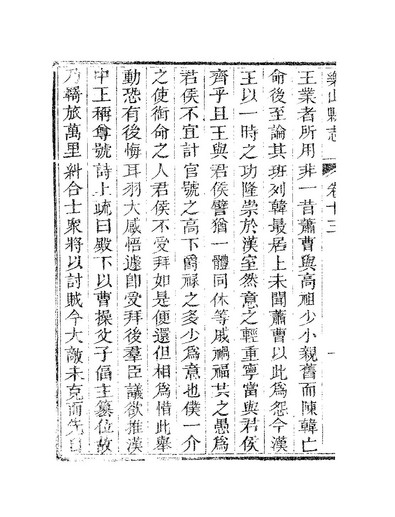 樂山縣志 卷十三
王業者所用非一昔蕭曹與高祖少小親舊而陳韓亡
命後至論其班列韓最居上未聞蕭曹以此為怨今漢
王以一時之功隆崇於漢室然意之輕重寧當與君侯
齊乎且王與君侯譬猶一體同休等戚禍福共之愚為
君侯不宜計官號之高下爵祿之多少為意也僕一介
之使銜命之人君侯不受拜如是便還但相為惜此舉
動恐有後悔耳羽大感悟遽即受拜後羣臣議欲推漢
中王稱尊號詩上疏曰殿下以曹操父子偪主篡位故
乃羇旅萬里糾合士衆將以討賊今大敵未克而先自